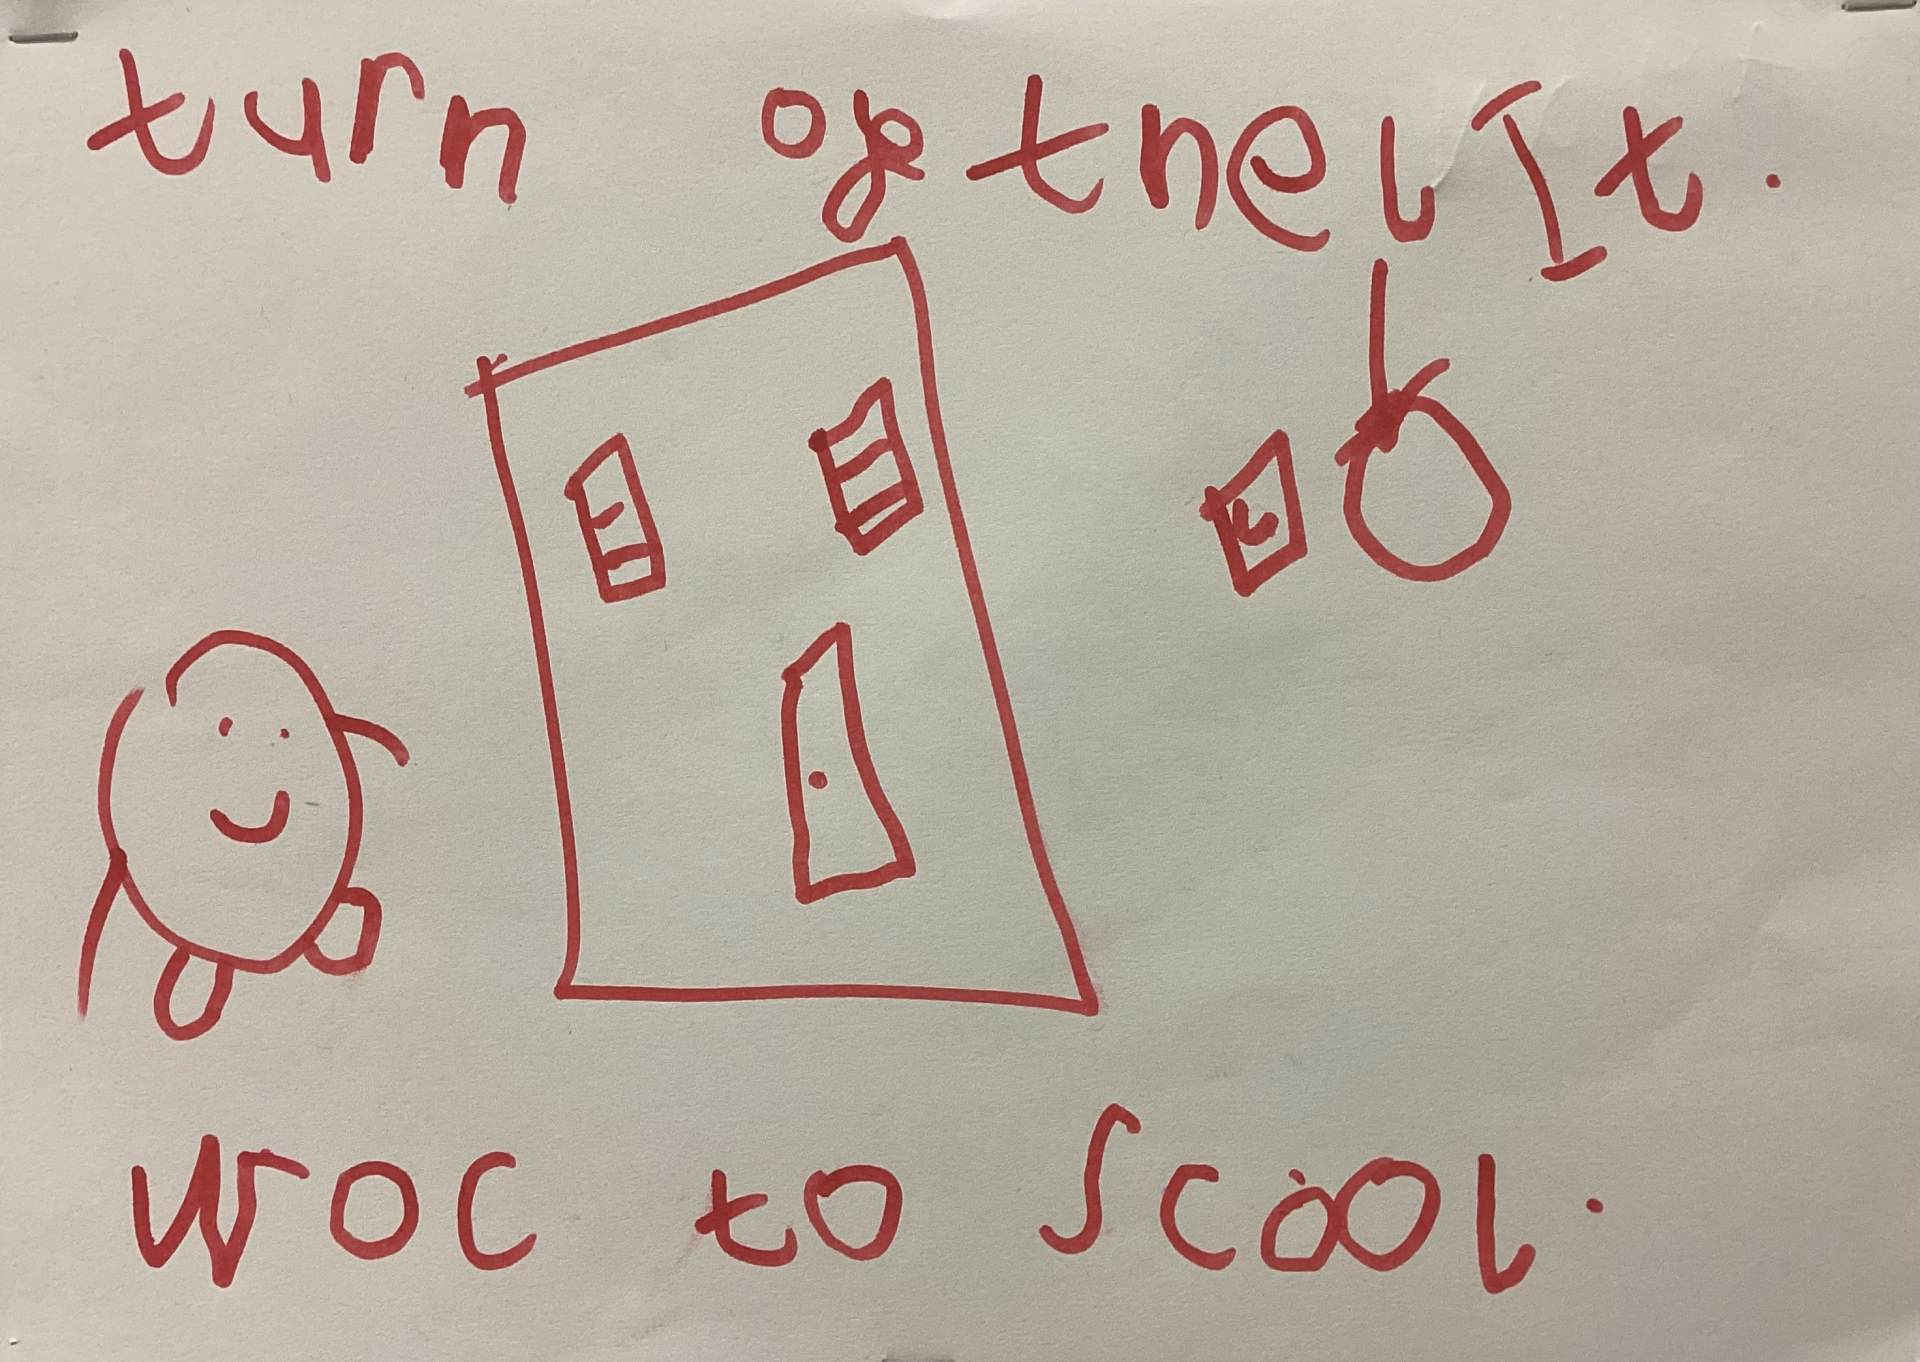 turn of the lIt.
woc to scool.